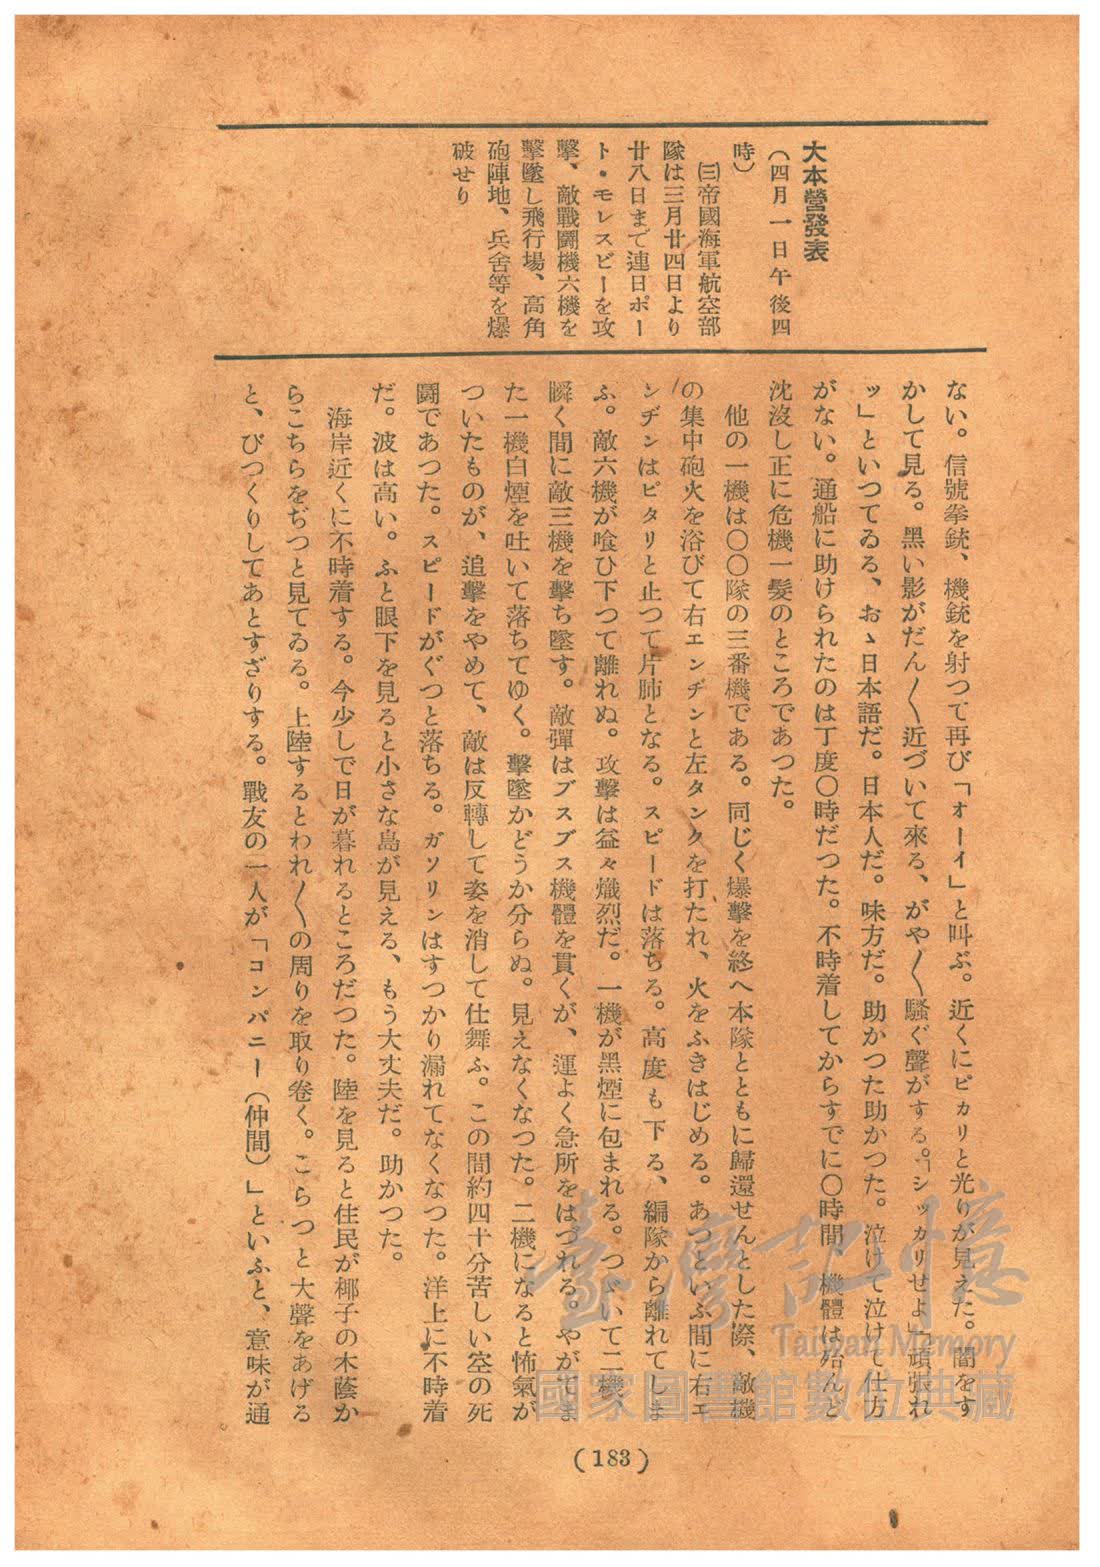 大本營發表
（四月一日午後四
時）
㈢帝國海軍航空部
隊は三月廿四日より
廿八日まで連日ポー
ト・モレスビーを攻
擊、敵戰鬪機六機を
擊墜し飛行場、高角
砲陣地、兵舍等を爆
破せり
ない。信號拳銃、機銃を射つて再び「オーイ」と叫ぶ。近くにピカリと光りが見えた。闇をす
かして見る。黑い影がだん〱近づいて來る、がや〱騷ぐ聲がする。「シッカリせよ」「頑張れ
ッ」といつてゐる、おゝ日本語だ。日本人だ。味方だ。助かつた助かつた。泣けて泣けて仕方
がない。通船に助けられたのは丁度〇時だつた。不時着してからすでに〇時間、機體は殆んど
沈沒し正に危機一髮のところであつた。
他の一機は〇〇隊の三番機である。同じく爆擊を終へ本隊とともに歸還せんとした際、敵機
の集中砲火を浴びて右エンヂンと左タンクを打たれ、火をふきはじめる。あつといふ間に右エ
ンヂンはピタリと止つて片肺となる。スピードは落ちる。高度も下る、編隊から離れてしま
ふ。敵六機が喰ひ下つて離れぬ。攻擊は益々熾烈だ。一機が黑煙に包まれる。つゞいて二機、
瞬く間に敵三機を擊ち墜す。敵彈はブスブス機體を貫くが、運よく急所をはづれる。やがてま
た一機白煙を吐いて落ちてゆく。擊墜かどうか分らぬ。見えなくなつた。二機になると怖氣が
ついたものが、追擊をやめて、敵は反轉して姿を消して仕舞ふ。この間約四十分苦しい空の死
鬪であつた。スピードがぐつと落ちる。ガソリンはすつかり漏れてなくなつた。洋上に不時着
だ。波は高い。ふと眼下を見ると小さな島が見える、もう大丈夫だ。助かつた。
海岸近くに不時着する。今少しで日が暮れるところだつた。陸を見ると住民が椰子の木蔭か
らこちらをぢつと見てゐる。上陸するとわれ〱の周りを取り卷く。こらつと大聲をあげる
と、びつくりしてあとずさりする。戰友の一人が「コンパニー（仲間）」といふと、意味が通
(183)
臺灣記憶
Taiwan Memory
國家圖書館數位典藏